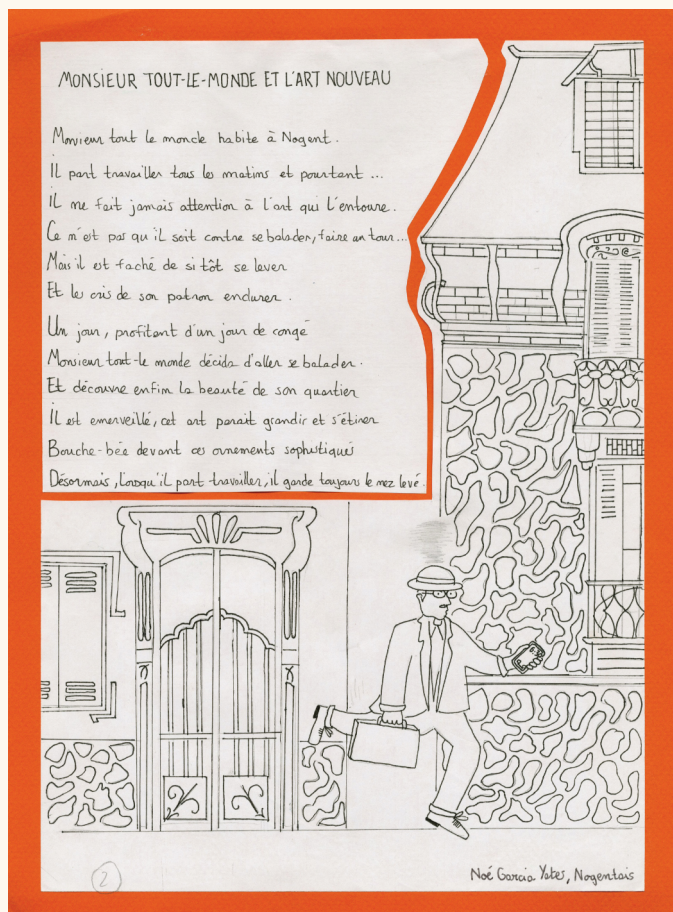 MONSIEUR TOUT-LE-MONDE ET L'ART NOUVEAU
Monsieur tout le monde habite à Nogent.
Il part travailler tous les matins et pourtant ...
Il ne fait jamais attention à l'art qui l'entoure.
Ce n'est pas qu'il soit contre se balader, faire un tour...
Mais il est faché de si tôt se lever
Et les cris de son patron endurer.
Un jour, profitant d'un jour de congé
Monsieur tout-le monde décida d'aller se balader.
Et découvre enfin la beauté de son quartier
Il est emerveillé, cet art parait grandir et s'étirer
Bouche-bée devant ces ornements sophistiqués
Désormais, lorsqu'il part travailler, il garde toujours le nez levé.
2
Noé Garcia Yates, Nogentais